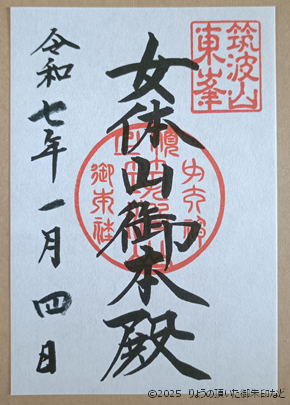 筑波山
東峯
女体山御本殿
令和七年一月四日
©2025 りょうの頂いた御朱印など